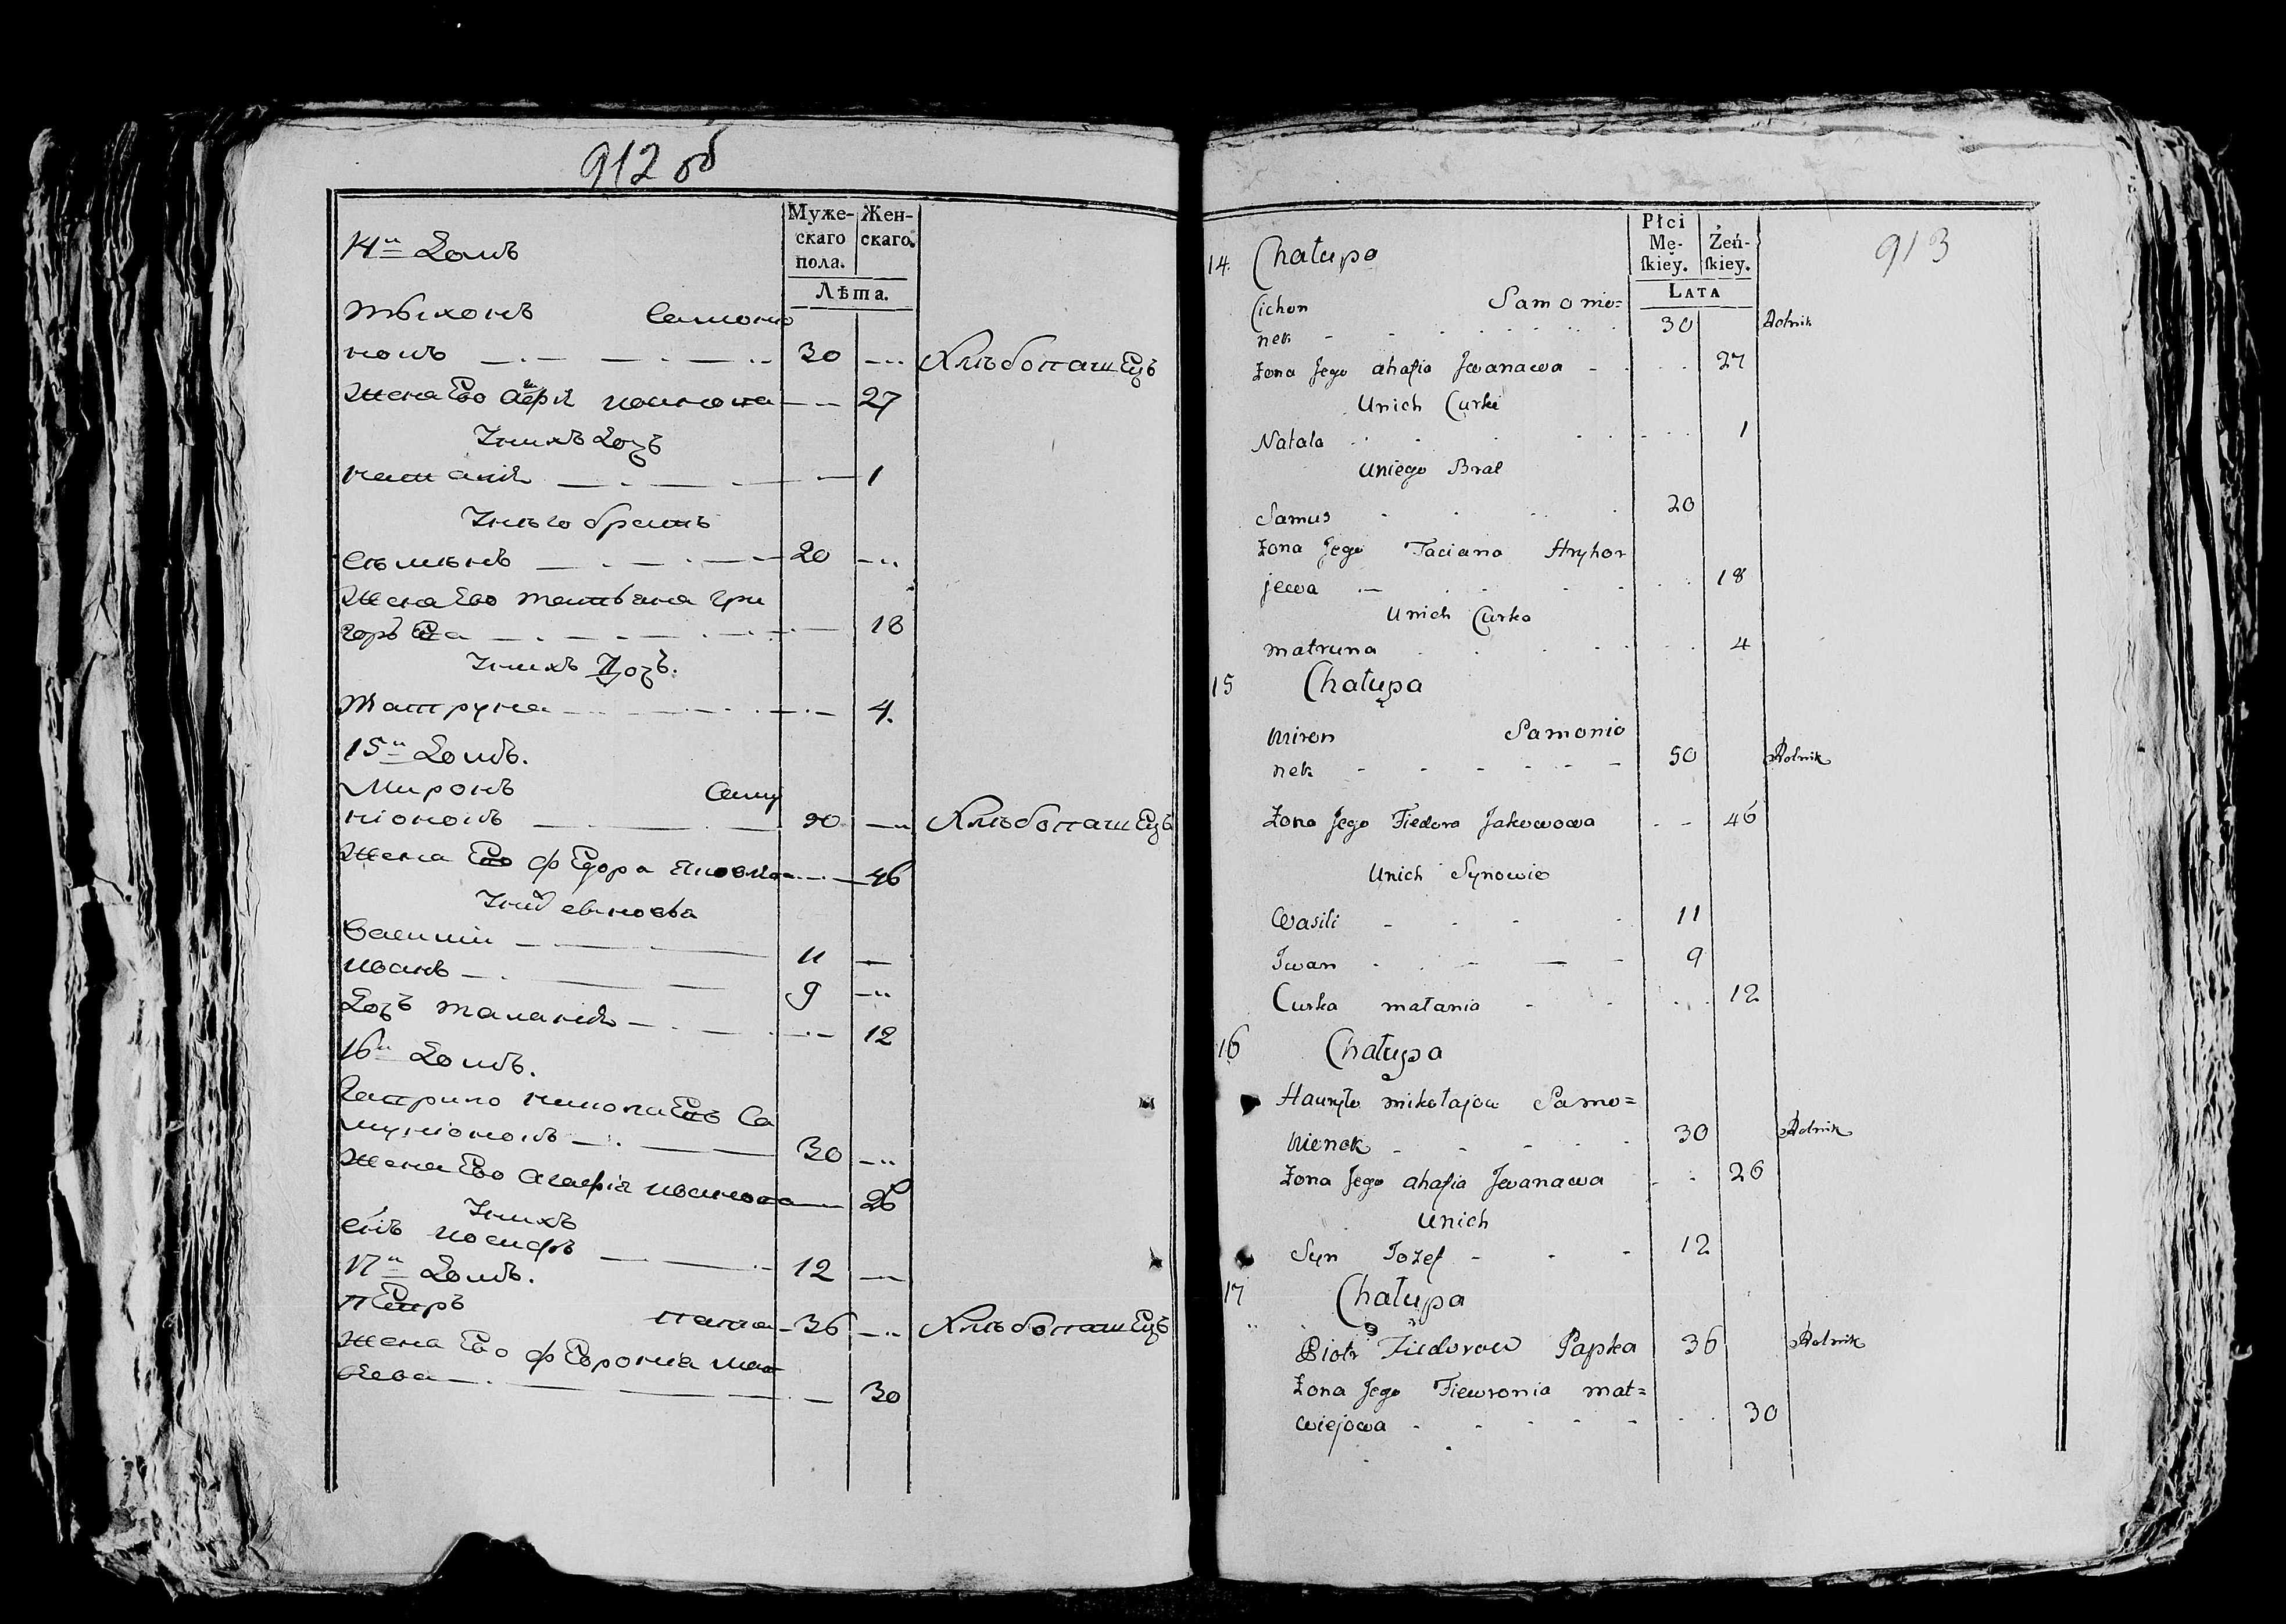 912 об
Муже- Жен-
скаго скаго.
пола.
Лѣта.
14й Домъ
Тыхонъ Самоню
нокъ 30 Хлѣбопашецъ
Жена Ево Агафія Иванова 27
У нихъ Дочь
Наталія 1
У него братъ
Сымънъ 20
Жена Ево Татьяна Гри
горьева 18
У нихъ Дочь.
Матруна 4.
15й Домъ.
Миронъ Саму
ніонокъ 50 Хлѣбопашецъ
Жена Ево Федора Яковлева 46
У них сыновья
Василій 11
Иванъ 9
Дочь Маланія 12
16й Домъ.
Гаврило Николаевъ Са
муніонокъ 30
Жена Ево Агафія Иванова 26
У нихъ
Сынъ Иосифъ 12
17й Домъ.
Петръ Папка 36 Хлѣбопашецъ
Жена Ево Февронія Мат
веева 30
913
Płci
Mę- Żeń-
skiey. skiey.
LATA
14. Chałupa
Cichon Samonio=
nek 30 Rolnik
Żona Jego ahafia Jwanawa 27
Unich Curki
Natala 1
Uniego Brat
Samus 20
Żona Jego Taciana Hryhor
jewa 18
Unich Curka
matruna 4
15 Chałupa
Miron Samonio
nek 50 Rolnik
Żona Jego Fiedora Jakowowa 46
Unich Synowie
Wasili 11
Jwan 9
Curka małania 12
16 Chałupa
Hawryło mikołajow Samo=
nienek 30 Rolnik
Żona Jego ahafia Jwanawa 26
Unich
Syn Jozef 12
17 Chałupa
Piotr Fiedorow Papka 36 Rolnik
Żona Jego Fiewronia mat=
wiejowa 30